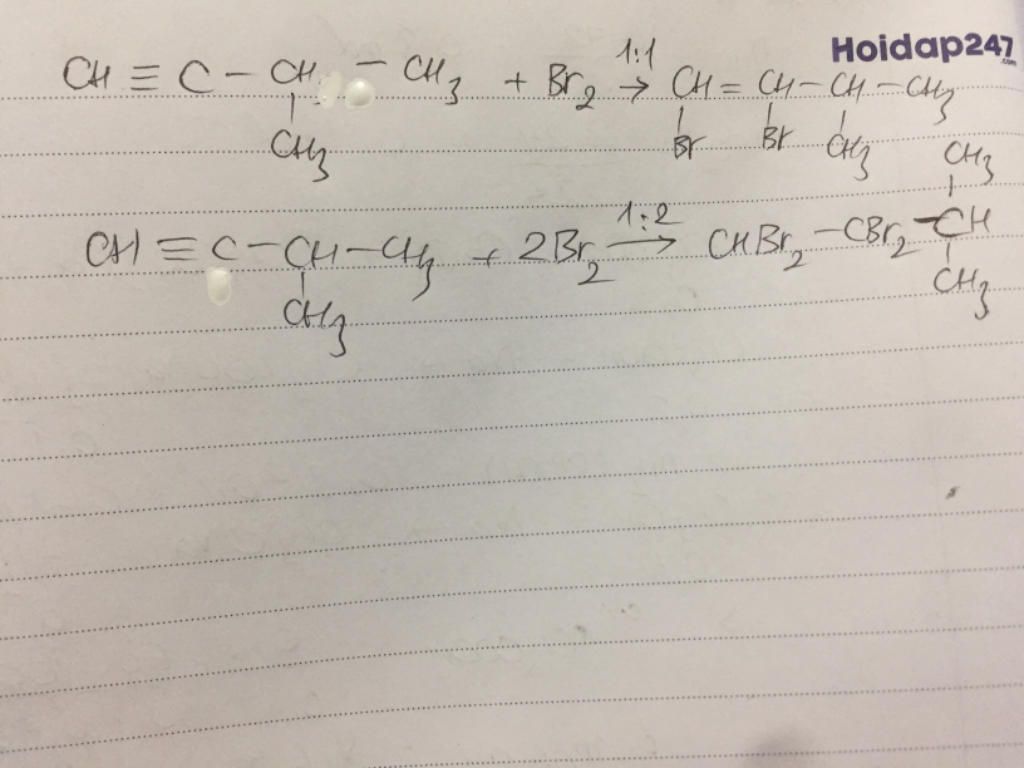 Hoidap247.com
CH ≡ C - CH - CH3 + Br2 1:1 → CH = CH - CH - CH3
CH3 Br Br CH3
CH3
CH ≡ C - CH - CH3 + 2Br2 1:2 → CHBr2 - CBr2 - CH
CH3 CH3